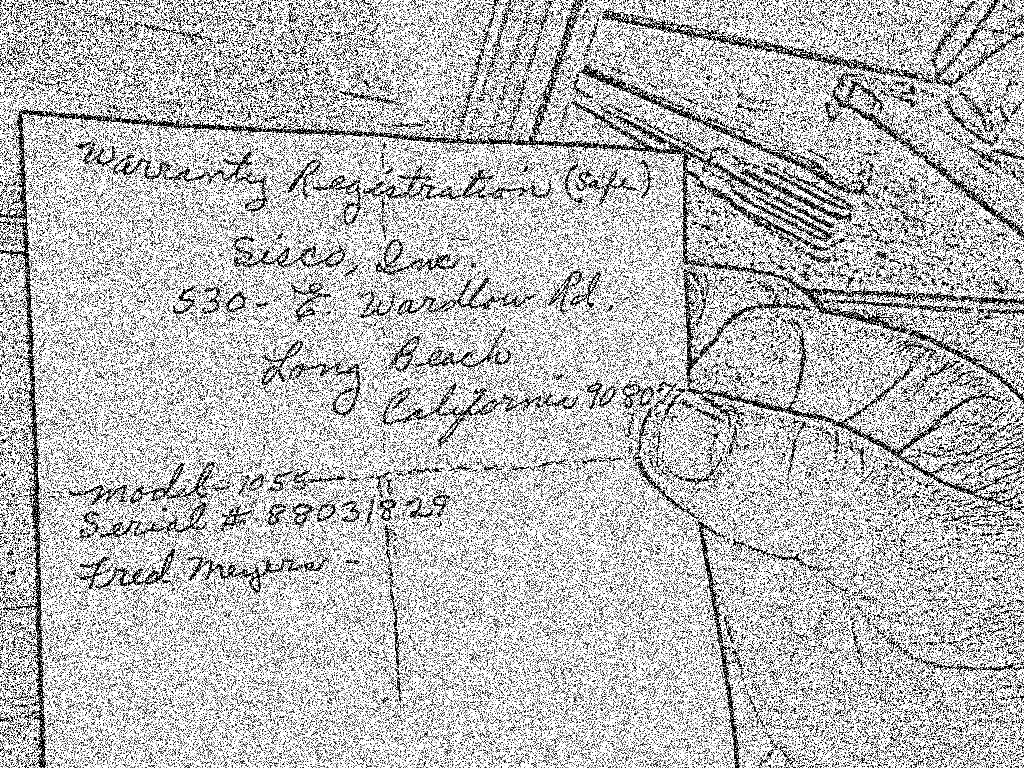 Warranty Registration (Safe)
Sisco, Inc.
530- E. Wardlow Rd.
Long Beach
California 90807
Model- 1055
Serial # 88031829
Fred Meyers -